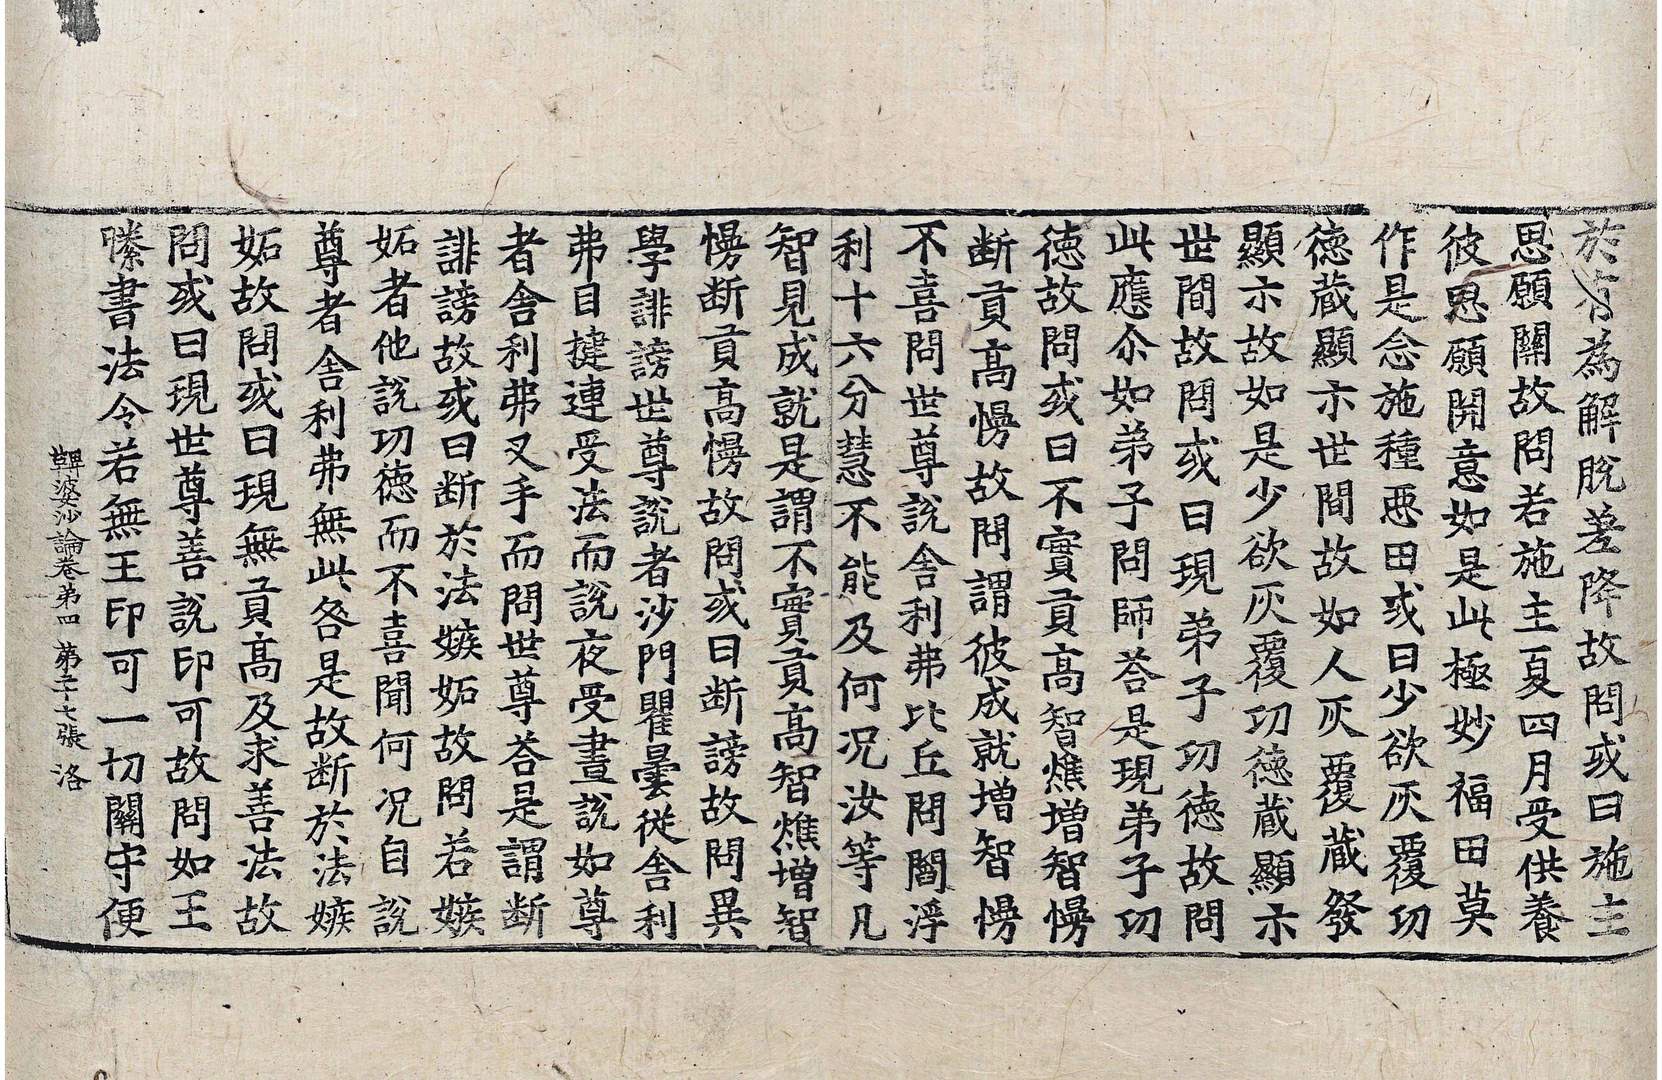 於有為解脫差降故問或曰施主
恩願關故問若施主夏四月受供養
彼恩願開意如是此極妙福田莫
作是念施種惡田或曰少欲灰覆功
德藏顯示世間故如人灰覆藏發
顯示故如是少欲灰覆功德藏顯示
世間故問或曰現弟子功德故問
此應尒如弟子問師荅是現弟子功
德故問或曰不實貢高智燋增智慢
断貢高慢故問謂彼成就增智慢
不喜問世尊說舍利弗比丘問閻浮
利十六分慧不能及何況汝等凡
智見成就是謂不實貢高智燋增智
慢断貢高慢故問或曰断謗故問異
學誹謗世尊說者沙門瞿曇從舍利
弗目揵連受法而說夜受晝說如尊
者舍利弗叉手而問世尊荅是謂断
誹謗故或曰断於法嫉妬故問若嫉
妬者他說功德而不喜聞何況自說
尊者舍利弗無此咎是故断於法嫉
妬故問或曰現無貢高及求善法故
問或曰現世尊善說印可故問如王
縢書法令若無王印可一切關守便
鞞婆沙論卷第四 第二十七張 洛